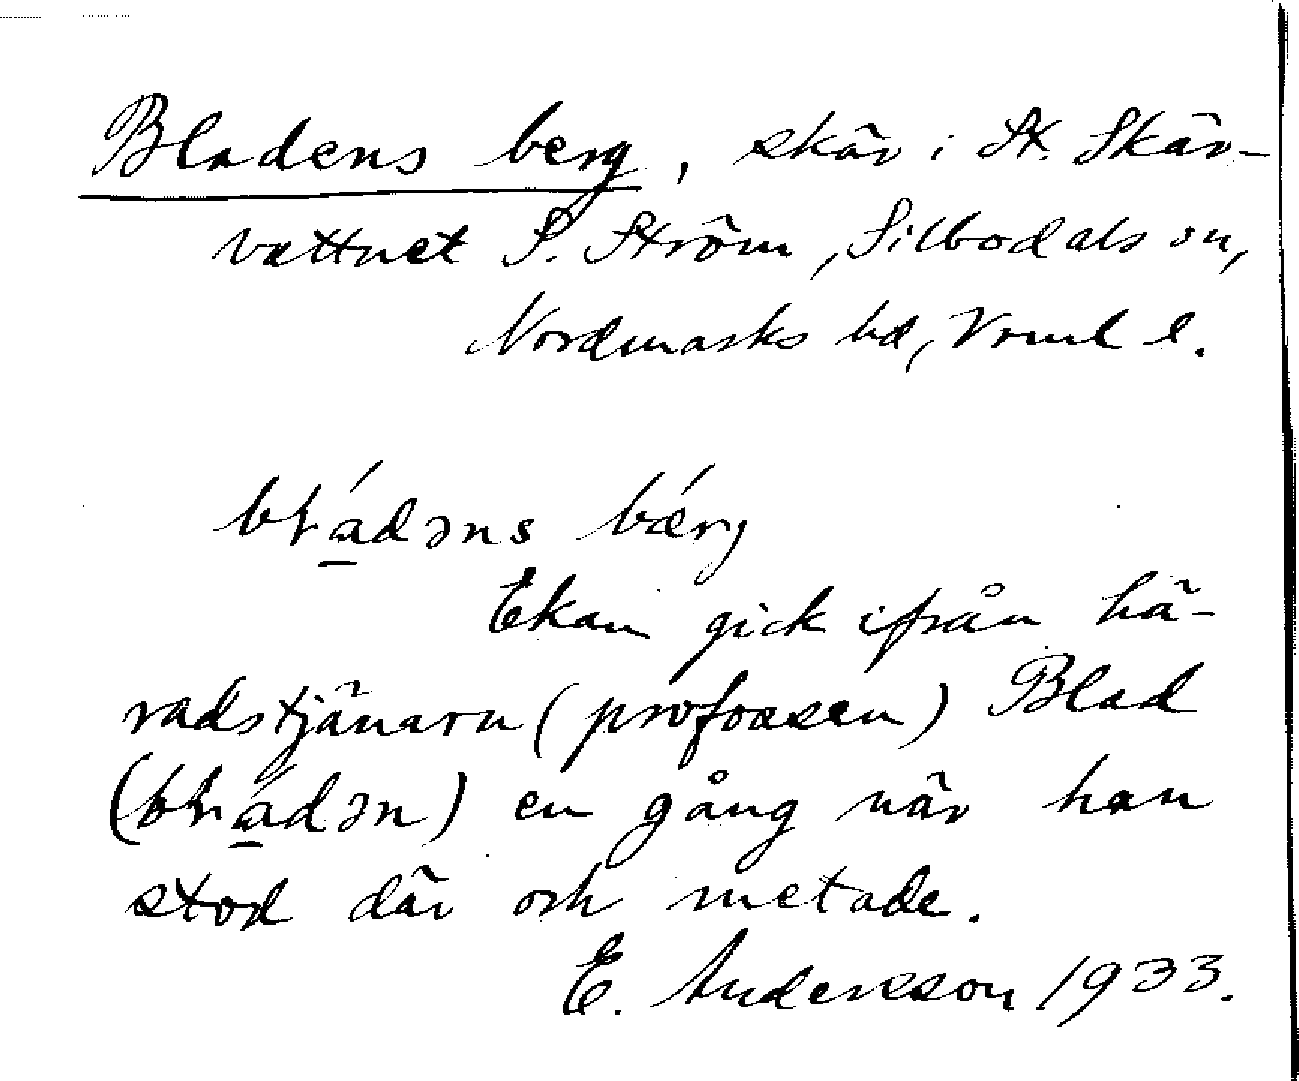 Bladens berg, skär i St. Skär-
vattnet S. Ström, Silbodals sn,
Nordmarks hd, Vrml l.
bɫádəns bǽrg
Ekan gick ifrån hä-
radstjänarn (profossen) Blad
(bɫádən) en gång när han
stod där och metade.
E. Andersson 1933.